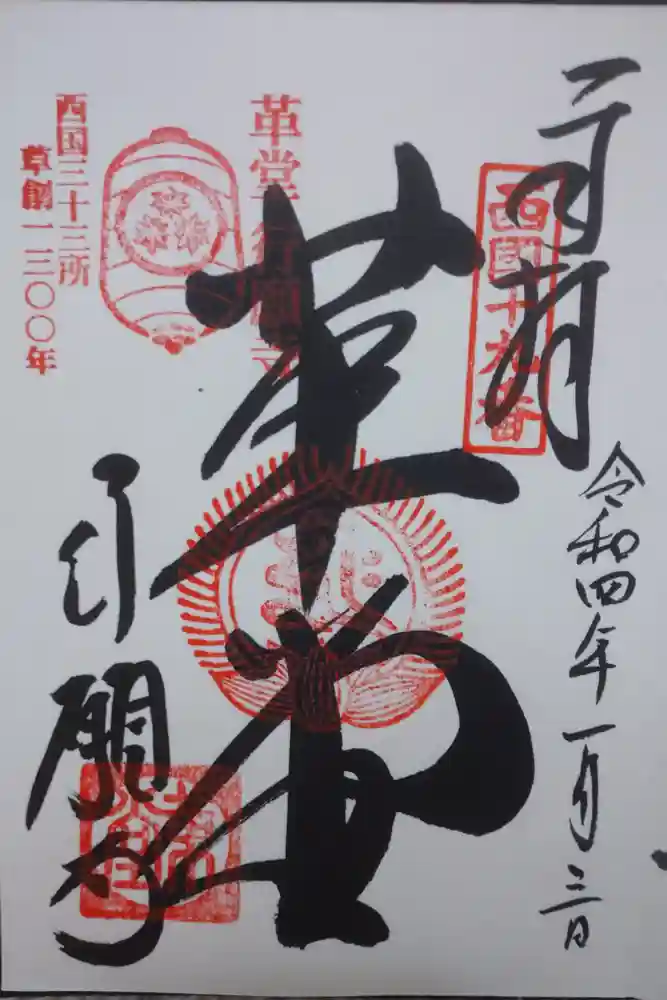 西國十九番
令和四年一月三日
革堂
革堂 行願寺
西国三十三所
草創一三〇〇年
行願寺